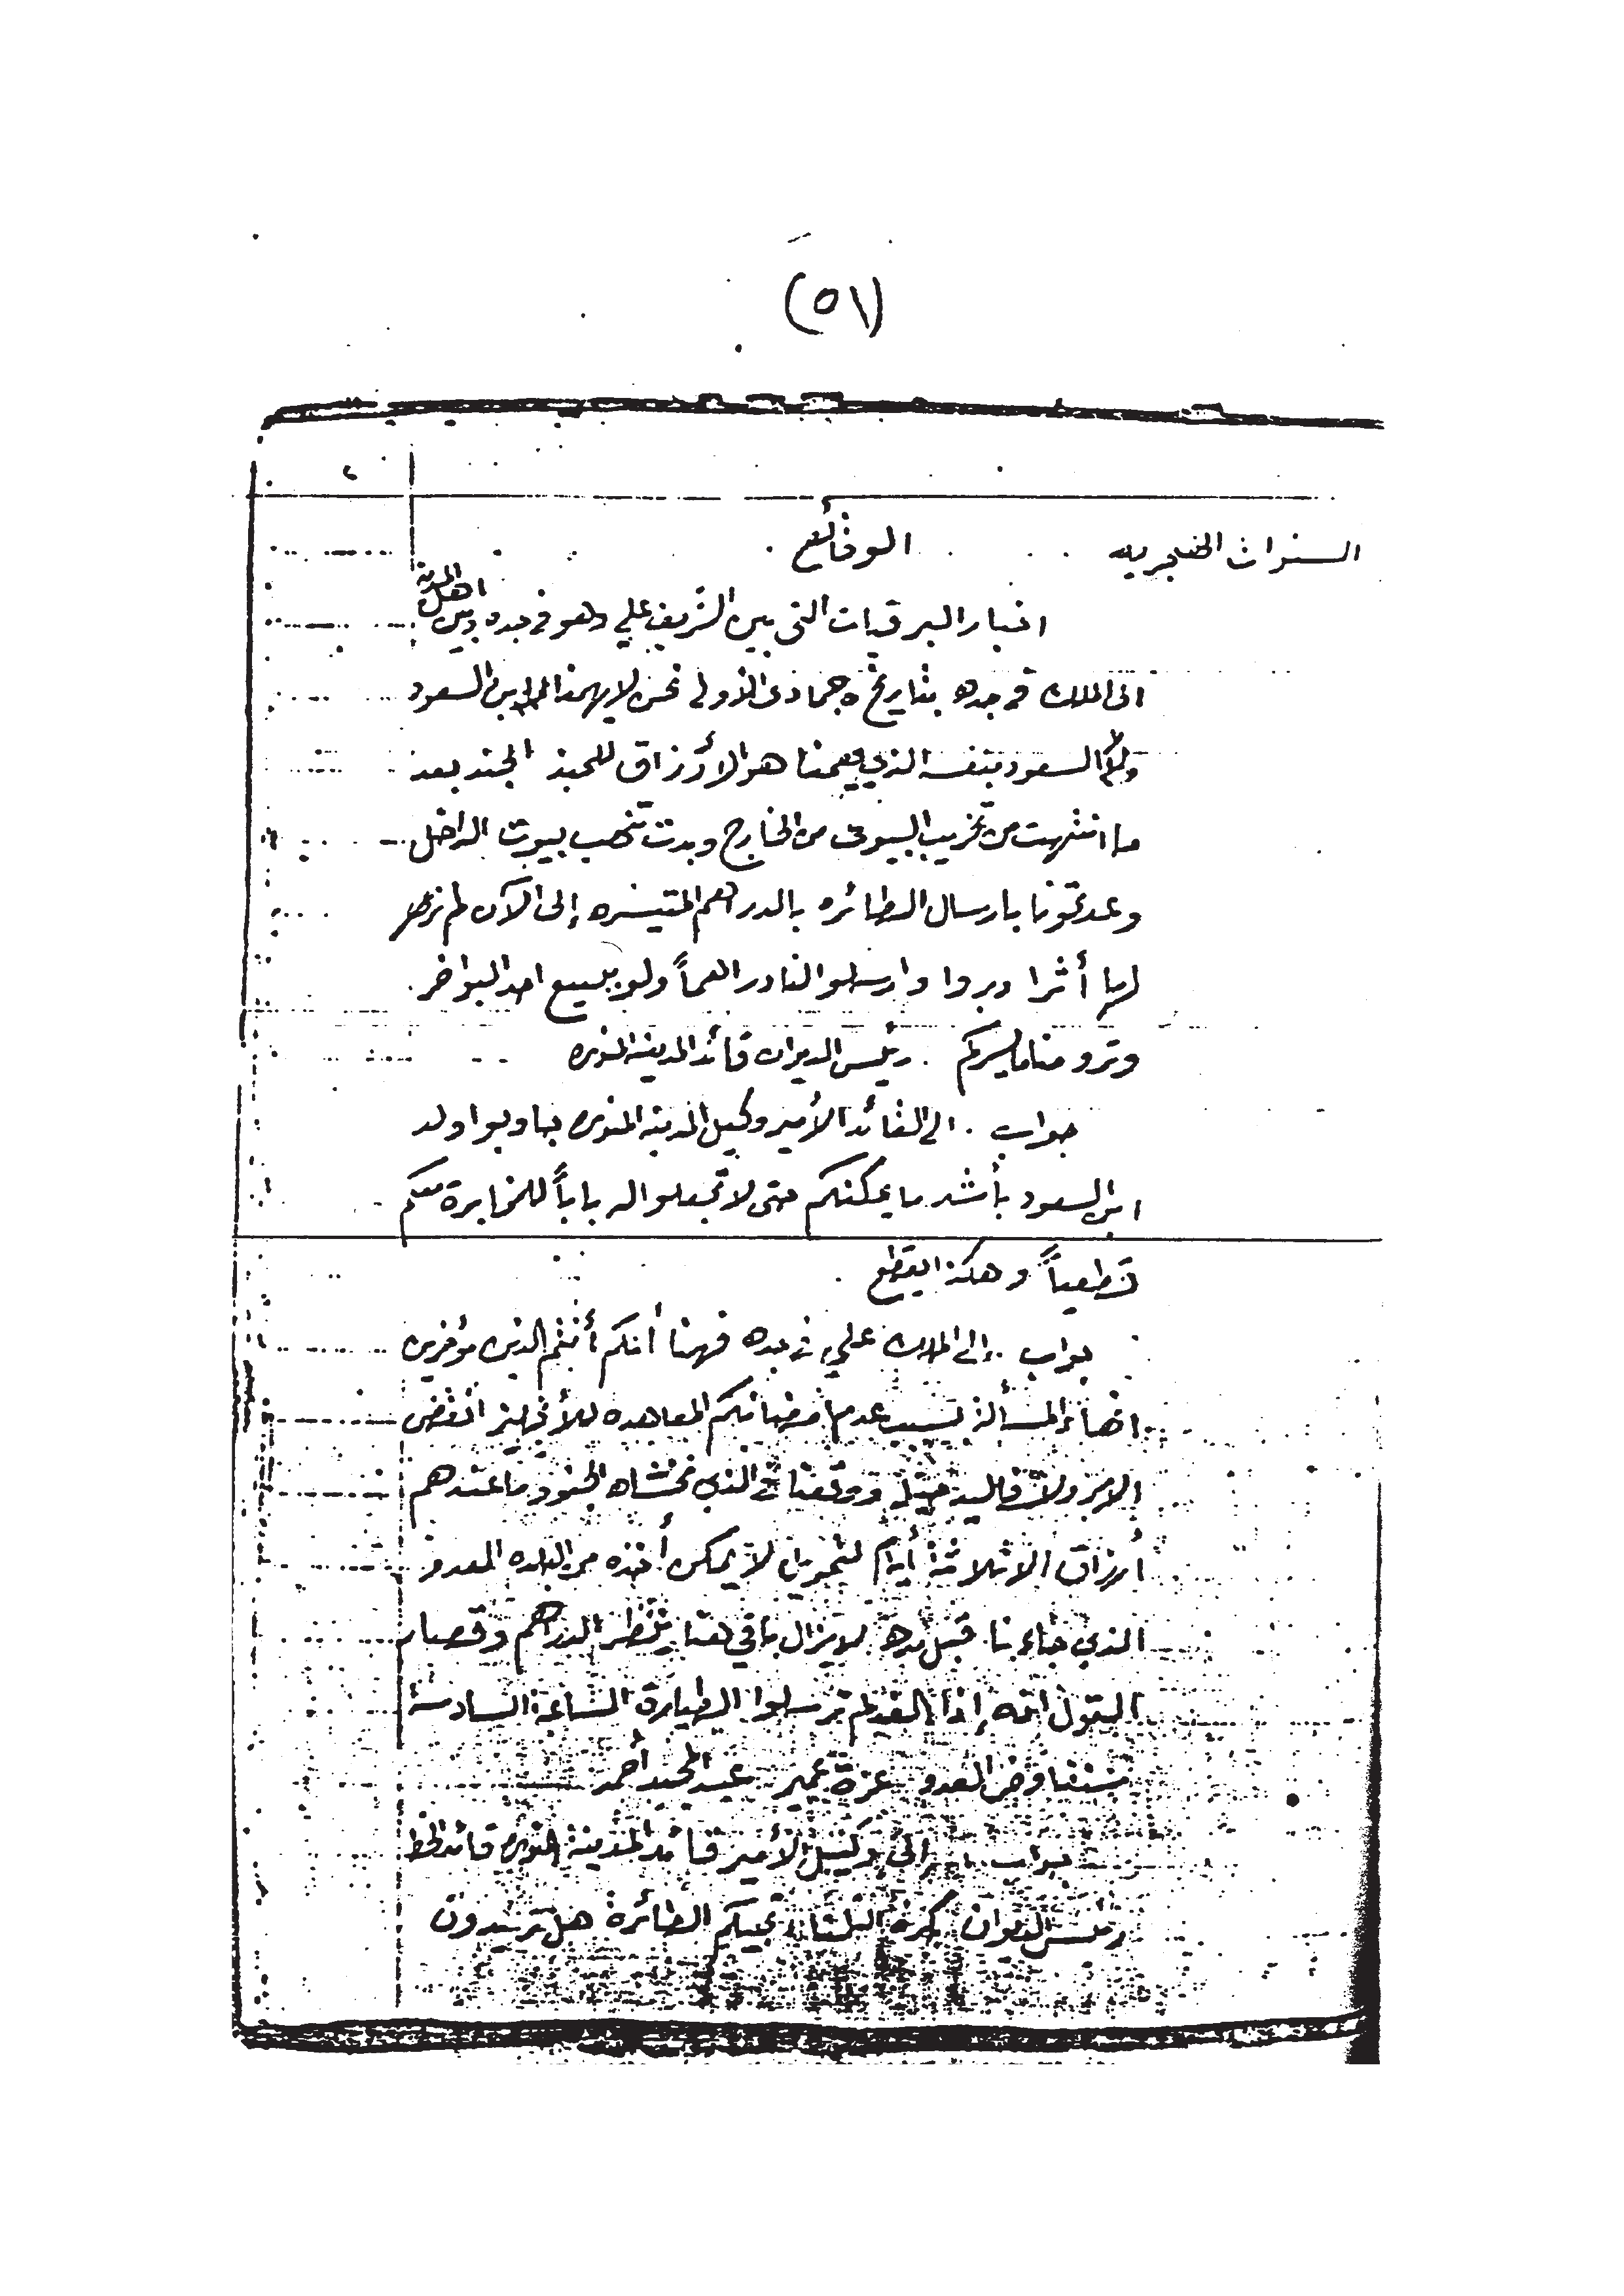 (٥١)
السنوات الهجريه الوقائع
اخبار البرقيات التي بين الشريف علي وهو في جده وبين اهل المدينة
الى الملك في جده بتاريخ ٥ جمادى الأولى نحن لا يهمنا ابن السعود
السعود بنفسه الذي يهمنا هو الأرزاق للجند الجند بعد
ما انتهت من تخريب البيوت من الخارج وبدت تنهب بيوت الداخل
وعدتمونا بارسال الطائره بالدراهم المتيسره إلى الآن لم نر
لها أثرا دبروا وارسلوا لنا دراهماً ولو ببيع احد البواخر
وتروا منا ما يسركم . رئيس الديوان قائد المدينه المنوره
جواب . الى القائد الأمير وكيل المدينه المنوره جاوبوا ولد
ابن السعود بأشد ما يمكنكم حتى لا تجعلوا له باباً للمخابرة معكم
قطعياً و هكذا
جواب . إلى الملك علي في جده فهمنا أنكم أنتم الذين مؤخرين
انهاء المسألة بسبب عدم امضائكم المعاهده للأنجليز
الذي نخشاه الجنود ما عندهم
أرزاق الا ثلاثة أيام لا يمكن أخذه من البلده
الذي جاء بنا قبل مده لا يزال باقي هنا ينتظر الدراهم وقصار
القول انه إذا الغد لم ترسلوا الطيارة الساعة السادسة
سنفاوض العدو عزة عمير عبد المجيد أحمد
جواب . إلى وكيل الأمير قائد المدينة المنوره قائد الخط
رئيس الديوان بكرة الثلثاء تجيكم الطائرة هل تريدون